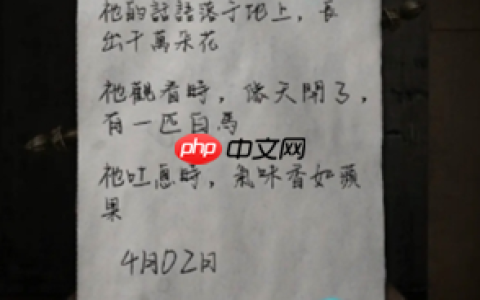 祂的話語落于地上，長
出千萬朵花
祂觀看時，像天開了，
有一匹白馬
祂吐息時，氣味香如蘋
果
4月02日
php 中文网